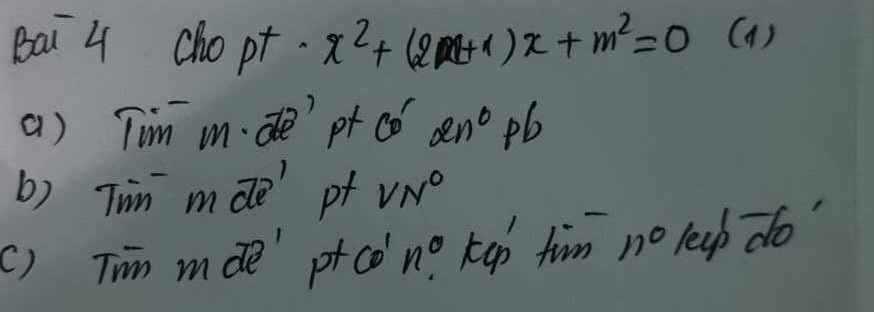 Bài 4 Cho pt. x² + (2m+1)x + m² = 0 (1)
a) Tìm m. để pt có 2n⁰ pb
b) Tìm m để pt VN⁰
c) Tìm m để pt có n⁰. kép tìm n⁰ kép đó